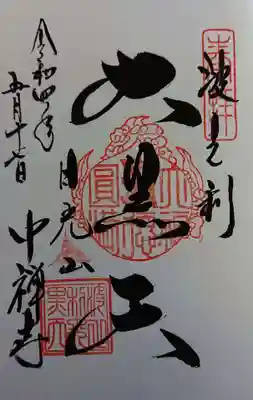 奉拝
波之利
大黒天
日光山
中禅寺
令和四年
五月十七日